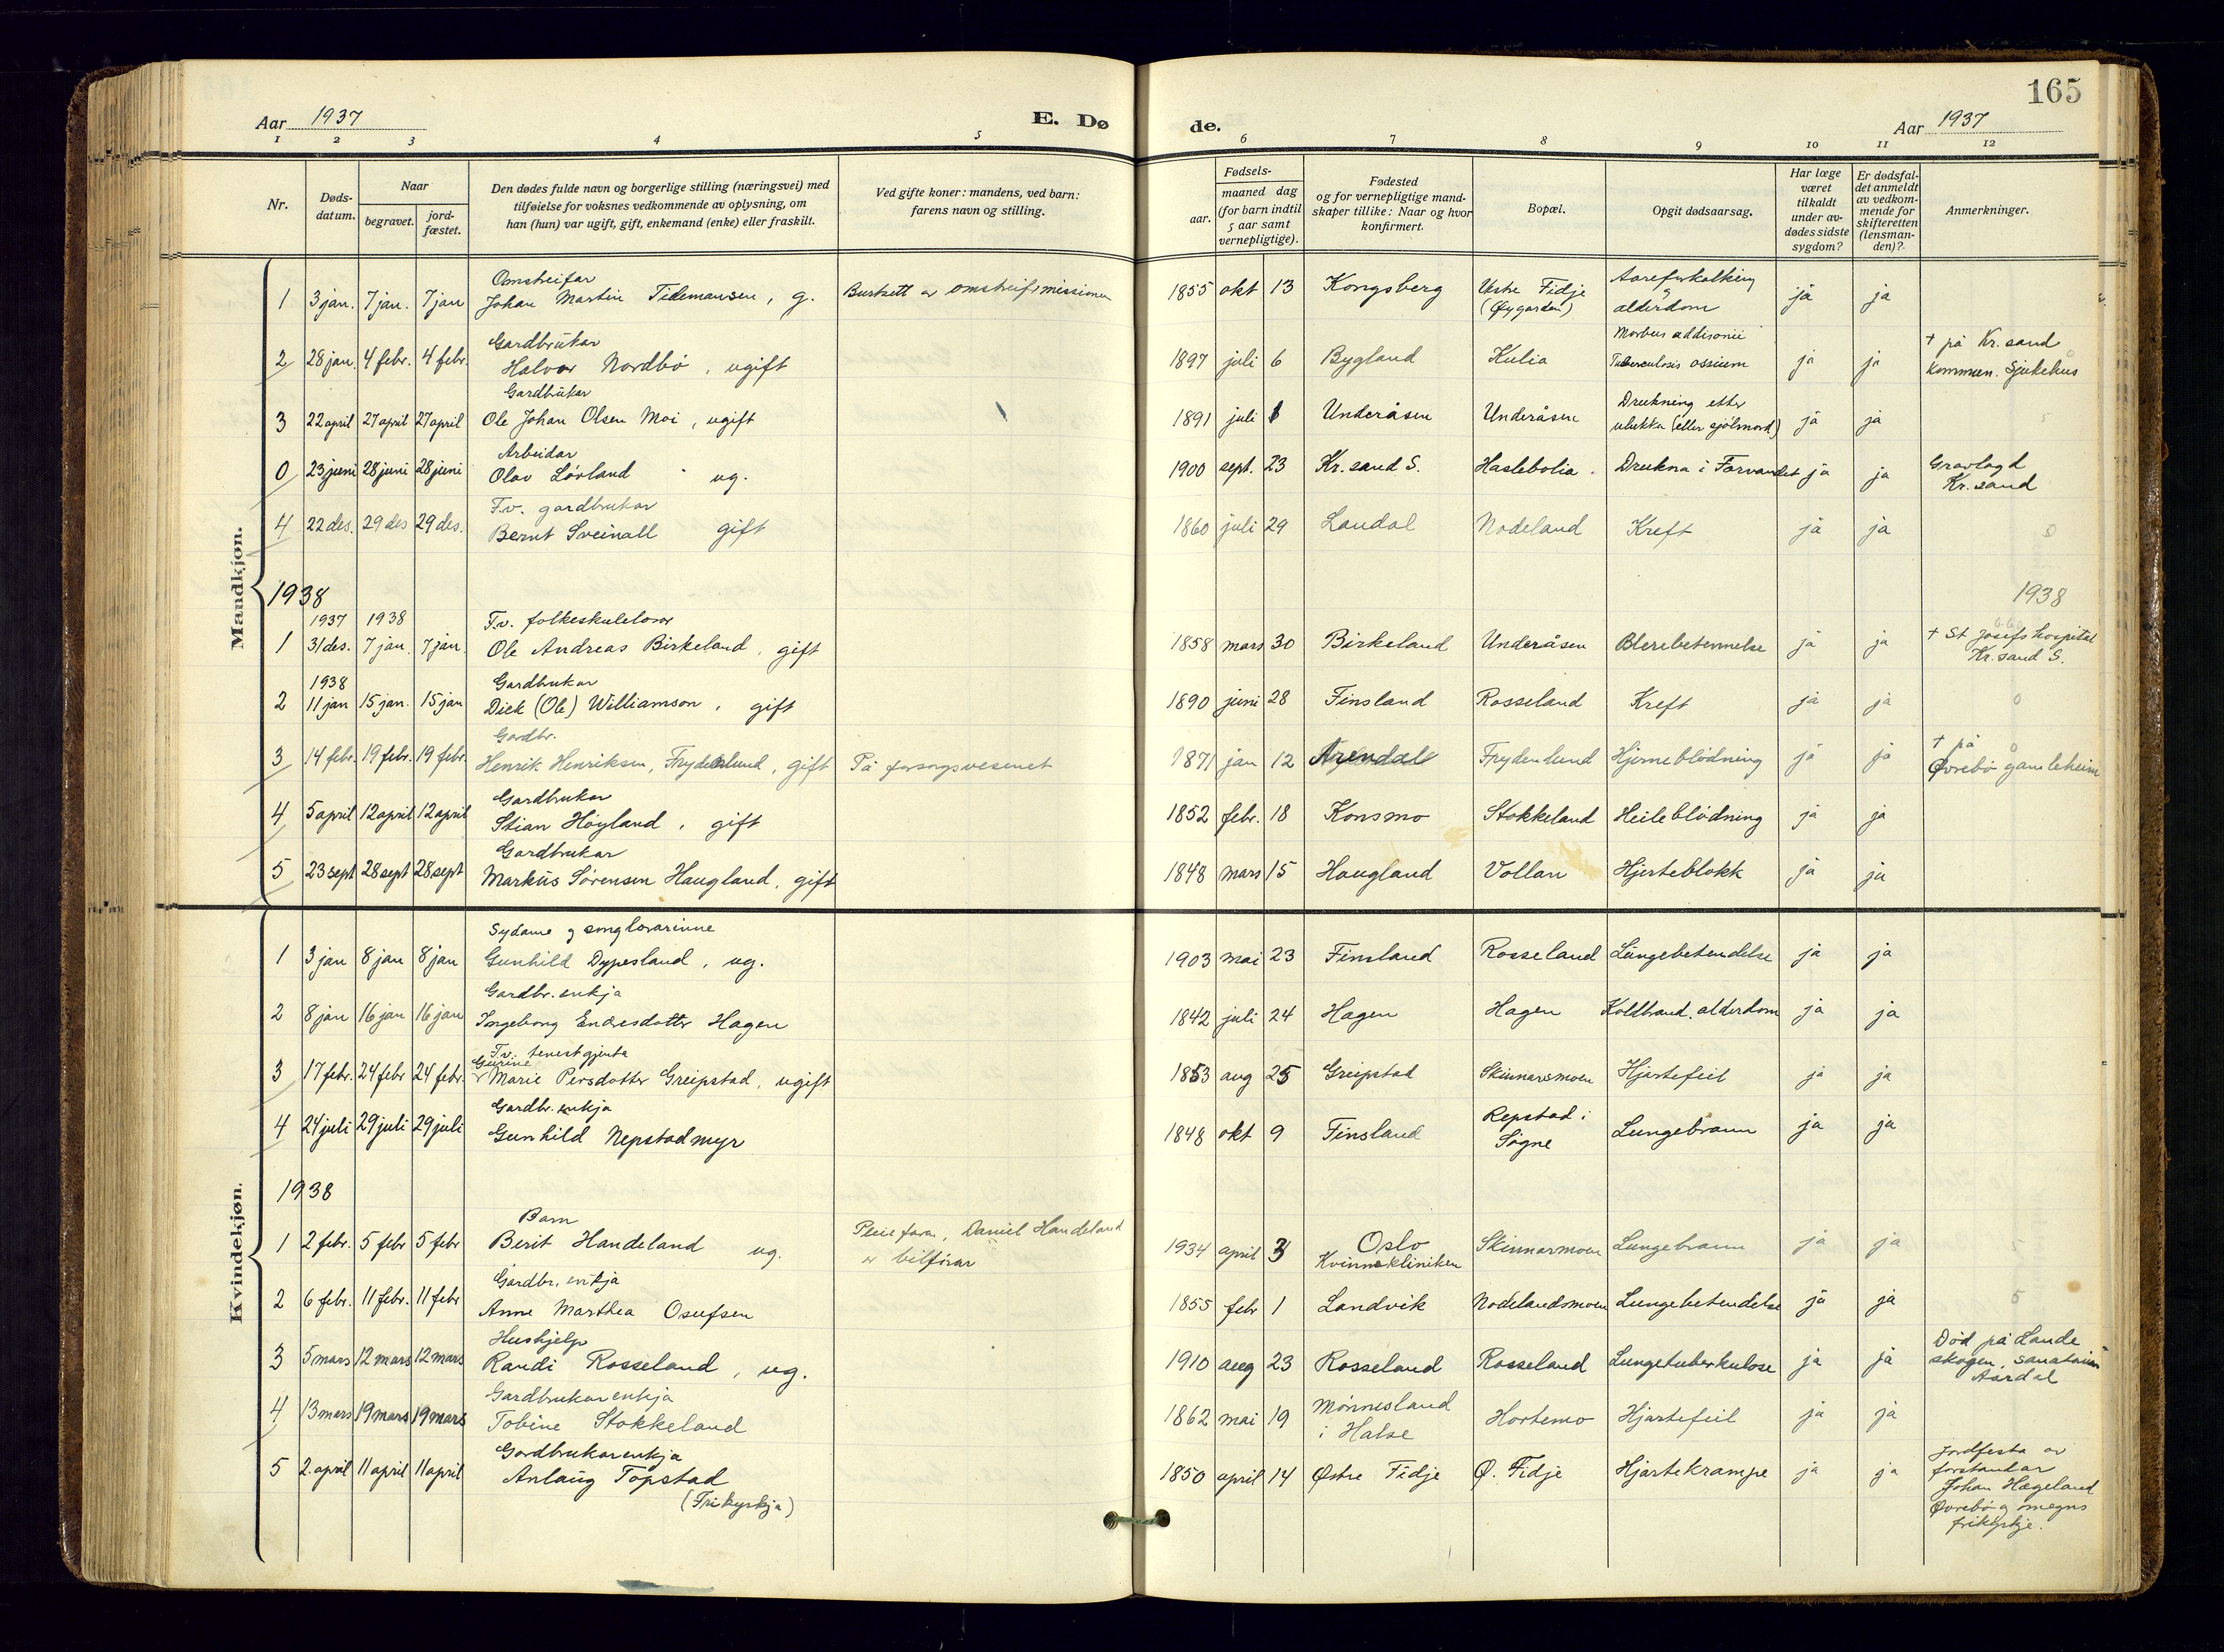 165
Aar 1937 E. Dø de. Aar 1937
1 2 3 4 5 6 7 8 9 10 11 12
Nr.
Dødsdatum.
Naar
begravet.
jordfæstet.
Den dødes fulde navn og borgerlige stilling (næringsvei) med
tilføielse for voksnes vedkommende av oplysning, om
han (hun) var ugift, gift, enkemand (enke) eller fraskilt.
Ved gifte koner: mandens, ved barn:
farens navn og stilling.
Fødsels-
aar. maaned dag
(for barn indtil
5 aar samt
vernepligtige).
Fødested
og for vernepligtige mand-
skaper tillike: Naar og hvor
konfirmert.
Bopæl.
Opgit dødsaarsag.
Har læge
været
tilkaldt
under av-
dødes sidste
sygdom?
Er dødsfal-
det anmeldt
av vedkom-
mende for
skifteretten
(lensman-
den)?
Anmerkninger.
Mandkjøn.
Omstreifar
1 3 jan. 7 jan. 7 jan Johan Martin Tidemansen, g. Burtsett av omstreifarmissionen 1855 okt 13 Kongsberg Vestre Fidje (Øygarden) Aareforkalking og alderdom ja ja
Gardbrukar
2 28 jan. 4 febr. 4 febr. Halvor Nordbø, ugift 1897 juli 6 Bygland Kulia Morbus addisonii Tuberculosis ossium ja ja † på Kr.sand kommun. Sjukehus
Gardbrukar
3 22 april 27 april 27 april Ole Johan Olsen Moi, ugift 1891 juli Underåsen Underåsen Drukning etter ulukka (eller sjølmord) ja ja
Arbeidar
0 23 juni 28 juni 28 juni Olav Løvland ug. 1900 sept. 23 Kr.sand S. Haslebolia Drukna i Farvandet ja ja Gravlagd Kr.sand
F.v. gardbrukar
4 22 des. 29 des 29 des. Bernt Sveinall gift 1860 juli 29 Laudal Nodeland Kreft ja ja
1938 1938
1937 1938 F.v. folkeskulelærar
1 31 des. 7 jan. 7 jan. Ole Andreas Birkeland, gift 1858 mars 30 Birkeland Underåsen Blerebetennelse ja ja † St. Josefs hospital Kr.sand S.
1938 Gardbrukar
2 11 jan 15 jan. 15 jan Dick (Ole) Williamson, gift 1890 juni 28 Finsland Rosseland Kreft ja ja 0
Gardbr.
3 14 febr. 19 febr. 19 febr. Henrik Henriksen, Frydenlund, gift På forsorgsvesenet 1871 jan 12 Arendal Frydenlund Hjerneblødning ja ja † på Øvrebø gamleheim
Gardbrukar
4 5 april 12 april 12 april Stian Høyland, gift 1852 febr. 18 Konsmo Stokkeland Heileblødning ja ja
Gardbrukar
5 23 sept 28 sept 28 sept Markus Sørensen Haugland, gift 1848 mars 15 Haugland Vollan Hjerteblokk ja ja
Kvindekjøn.
Sydame og songlærarinne
1 3 jan 8 jan 8 jan Gunhild Dypesland, ug. 1903 mai 23 Finsland Rosseland Lungebetendelse ja ja
Gardbr.enkja
2 8 jan 16 jan 16 jan Ingeborg Endresdotter Hagen 1842 juli 24 Hagen Hagen Koldbrand, alderdom ja ja
F.v. tenestgjenta
Gurine
3 17 febr. 24 febr 24 febr. Marie Persdotter Greipstad, ugift 1853 aug 25 Greipstad Skinnarsmoen Hjartefeil ja ja
Gardbr. enkja
4 24 juli 29 juli 29 juli Gunhild Nepstadmyr 1848 okt 9 Finsland Repstad i Søgne Lungebrann ja ja
1938
Barn
1 2 febr. 5 febr 5 febr Berit Handeland ug. Pleiefaren, Daniel Handeland er bilførar 1934 april 3 Oslo Kvinnekliniken Skinnarmoen Lungebrann ja ja
Gardbr. enkja
2 6 febr. 11 febr. 11 febr Anne Marthea Osufsen 1855 febr 1 Landvik Nodelandsmoen Lungebetendelse ja ja
Hushjelp
3 5 mars 12 mars 12 mars Randi Rosseland, ug. 1910 aug 23 Rosseland Rosseland Lungetuberkulose ja ja Død på Landeskogen, sanatorium Aardal
Gardbrukarenkja
4 13 mars 19 mars 19 mars Tobine Stokkeland 1862 mai 19 Monnesland i Halse Hortemo Hjartefeil ja ja
Gardbrukarenkja
5 2. april 11 april 11 april Anlaug Topstad 1850 april 14 Østre Fidje Ø. Fidje Hjartekrampe ja ja Jordfesta av forstandar Johan Hægeland Øvrebø og omegns frikyrkje.
(Frikyrkja)